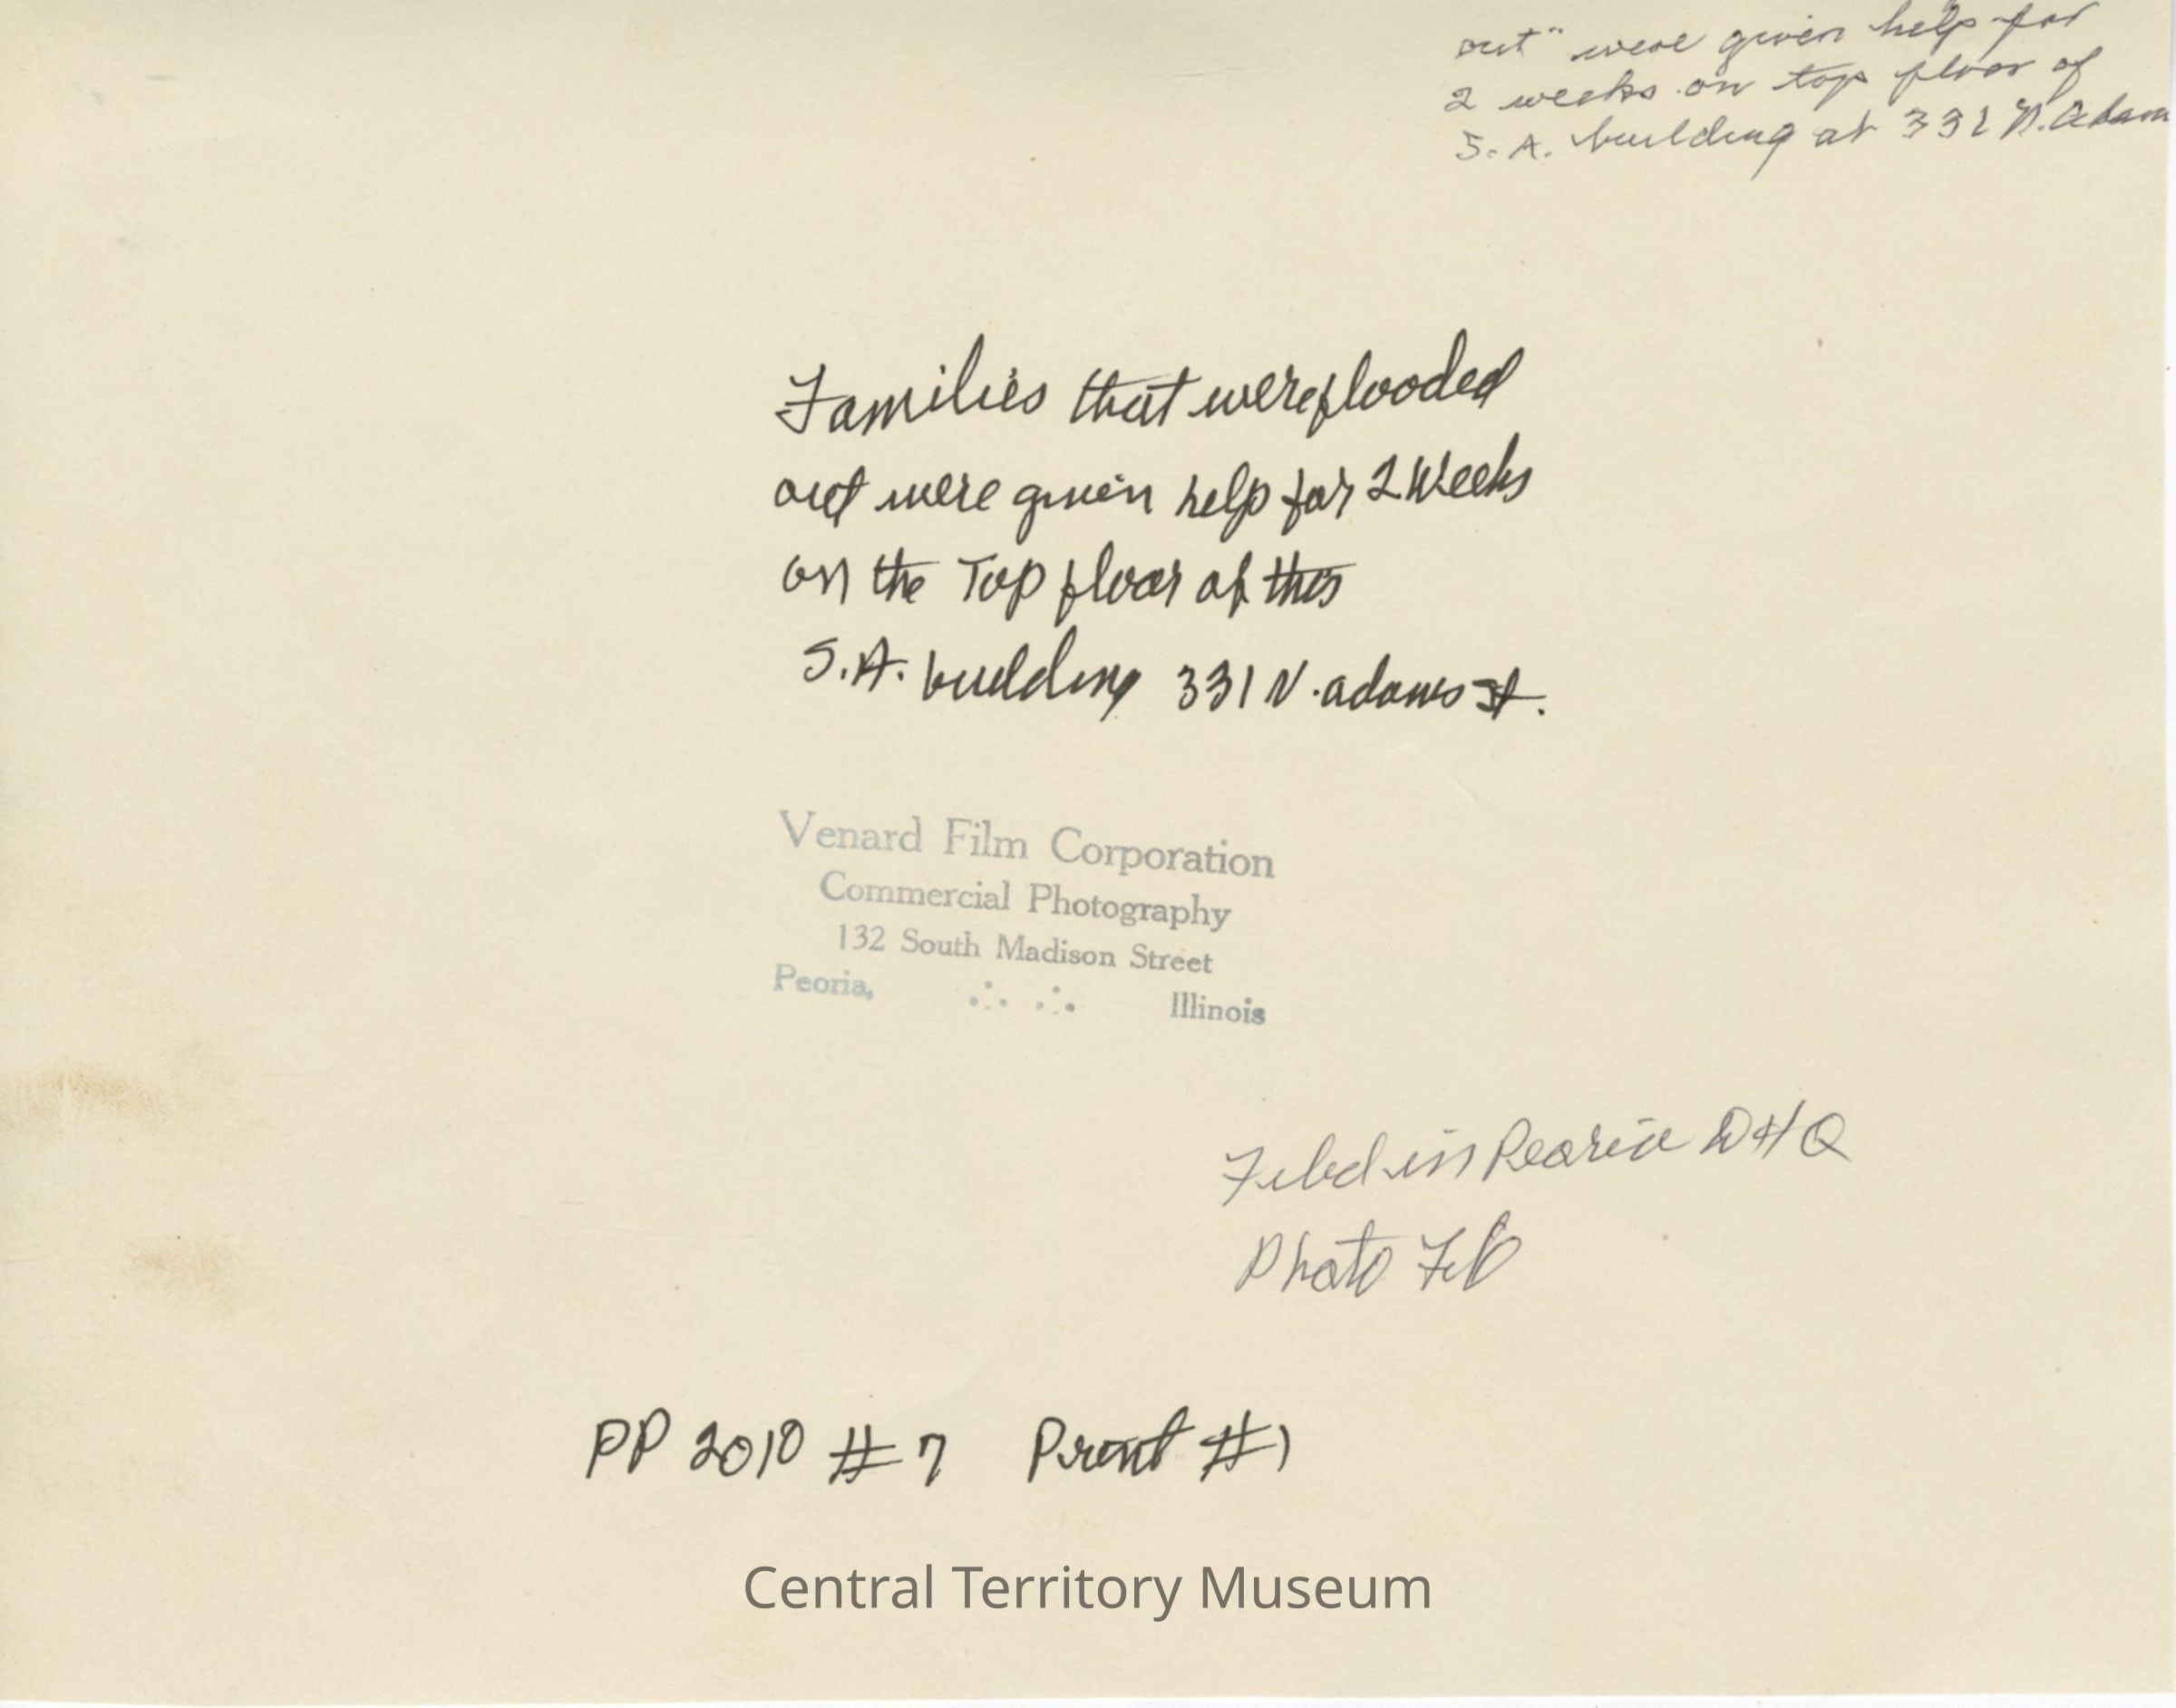 out" were given help for
2 weeks on top floor of
S. A. building at 331 N. Adam
Families that were flooded
out were given help for 2 Weeks
on the Top floor of this
S.A. building 331 N. adams St.
Venard Film Corporation
Commercial Photography
132 South Madison Street
Peoria, Illinois
Filed in Peoria DHQ
Photo File
PP 2010 #7 Print #1
Central Territory Museum